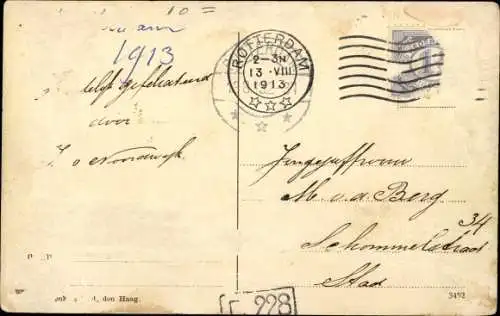 10 =
1913
gefeliciteerd
door
Noordwijk
ROTTERDAM
2-3N
13 · VIII
1913
Jongejuffrouw
M. v. d. Berg
Schommelstraat 34
Stad
den Haag.
3492
228